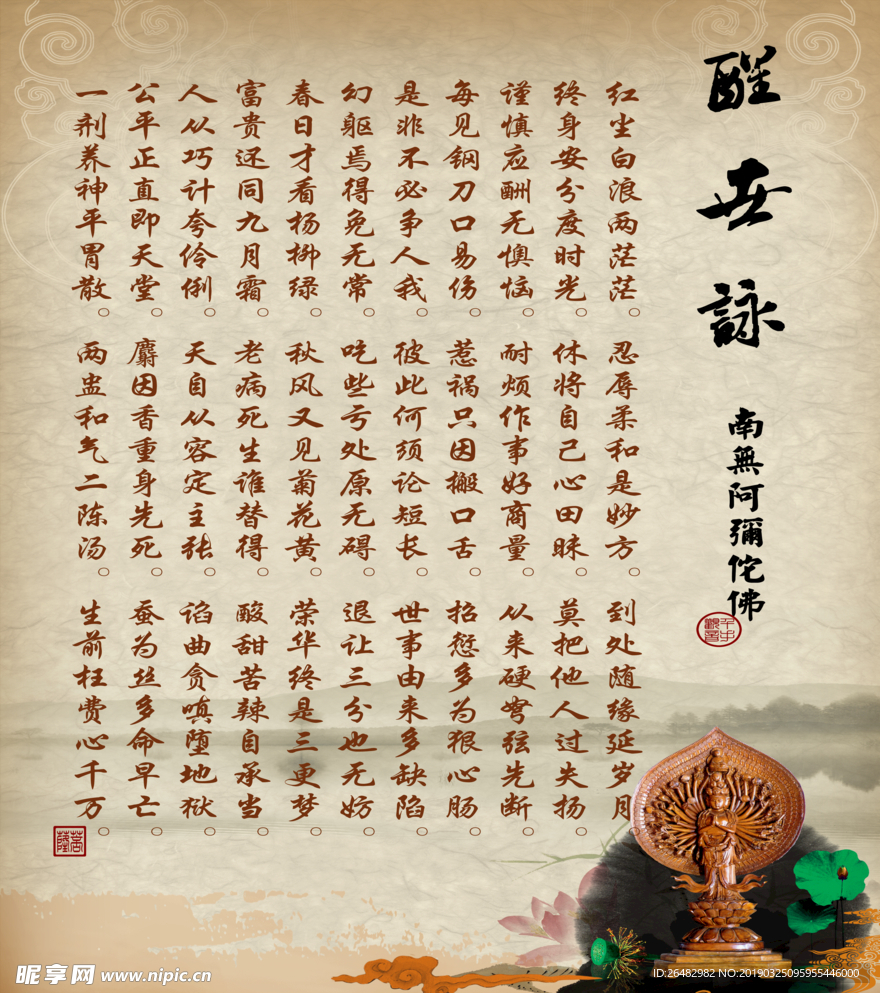 醒世詠
南無阿彌佗佛
红尘白浪两茫茫。忍辱柔和是妙方。到处随缘延岁月。
终身安分度时光。休将自己心田昧。莫把他人过失扬。
谨慎应酬无懊恼。耐烦作事好商量。从来硬弩弦先断。
每见钢刀口易伤。惹祸只因搬口舌。招愆多为狠心肠。
是非不必争人我。彼此何须论短长。世事由来多缺陷。
幻躯焉得免无常。吃些亏处原无碍。退让三分也无妨。
春日才看杨柳绿。秋风又见菊花黄。荣华终是三更梦。
富贵还同九月霜。老病死生谁替得。酸甜苦辣自承当。
人从巧计夸伶俐。天自从容定主张。谄曲贪嗔堕地狱。
公平正直即天堂。麝因香重身先死。蚕为丝多命早亡。
一剂养神平胃散。两盅和气二陈汤。生前枉费心千万。
昵享网 www.nipic.cn
ID:26482982 NO:20190325095955446000